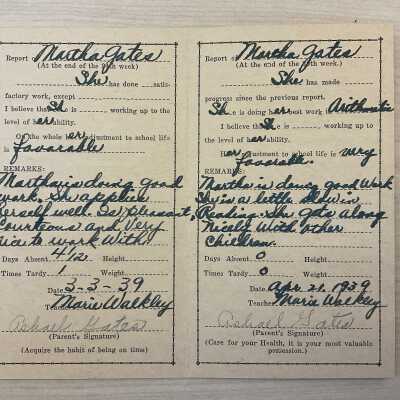 Report of Martha Gates
(At the end of the            week)
She has done satis-
factory work, except
I believe that She is working up to the
level of her ability.
On the whole her adjustment to school life
is favorable
REMARKS:
Martha is doing good
work. She applies
herself well. Is pleasant,
Courteous and Very
nice to work With
Days Absent 4 1/2 Height
Times Tardy 1 Weight
Date 3-3-39
Teacher Marie Walkley
Gates
(Parent's Signature)
(Acquire the habit of being on time)
Report of Martha Gates
(At the end of the            week)
She has made
progress since the previous report.
She is doing her best work in Arithmetic
I believe She is working up to
the level of her ability.
Her adjustment to school life is very
favorable.
REMARKS:
Martha is doing good Work
She is a little slow in
Reading. She gets along
Nicely With other
Children.
Days Absent 0 Height
Times Tardy 0 Weight
Date Apr. 21, 1939
Teacher Marie Walkley
Gates
(Parent's Signature)
(Care for your Health, it is your most valuable
possession.)